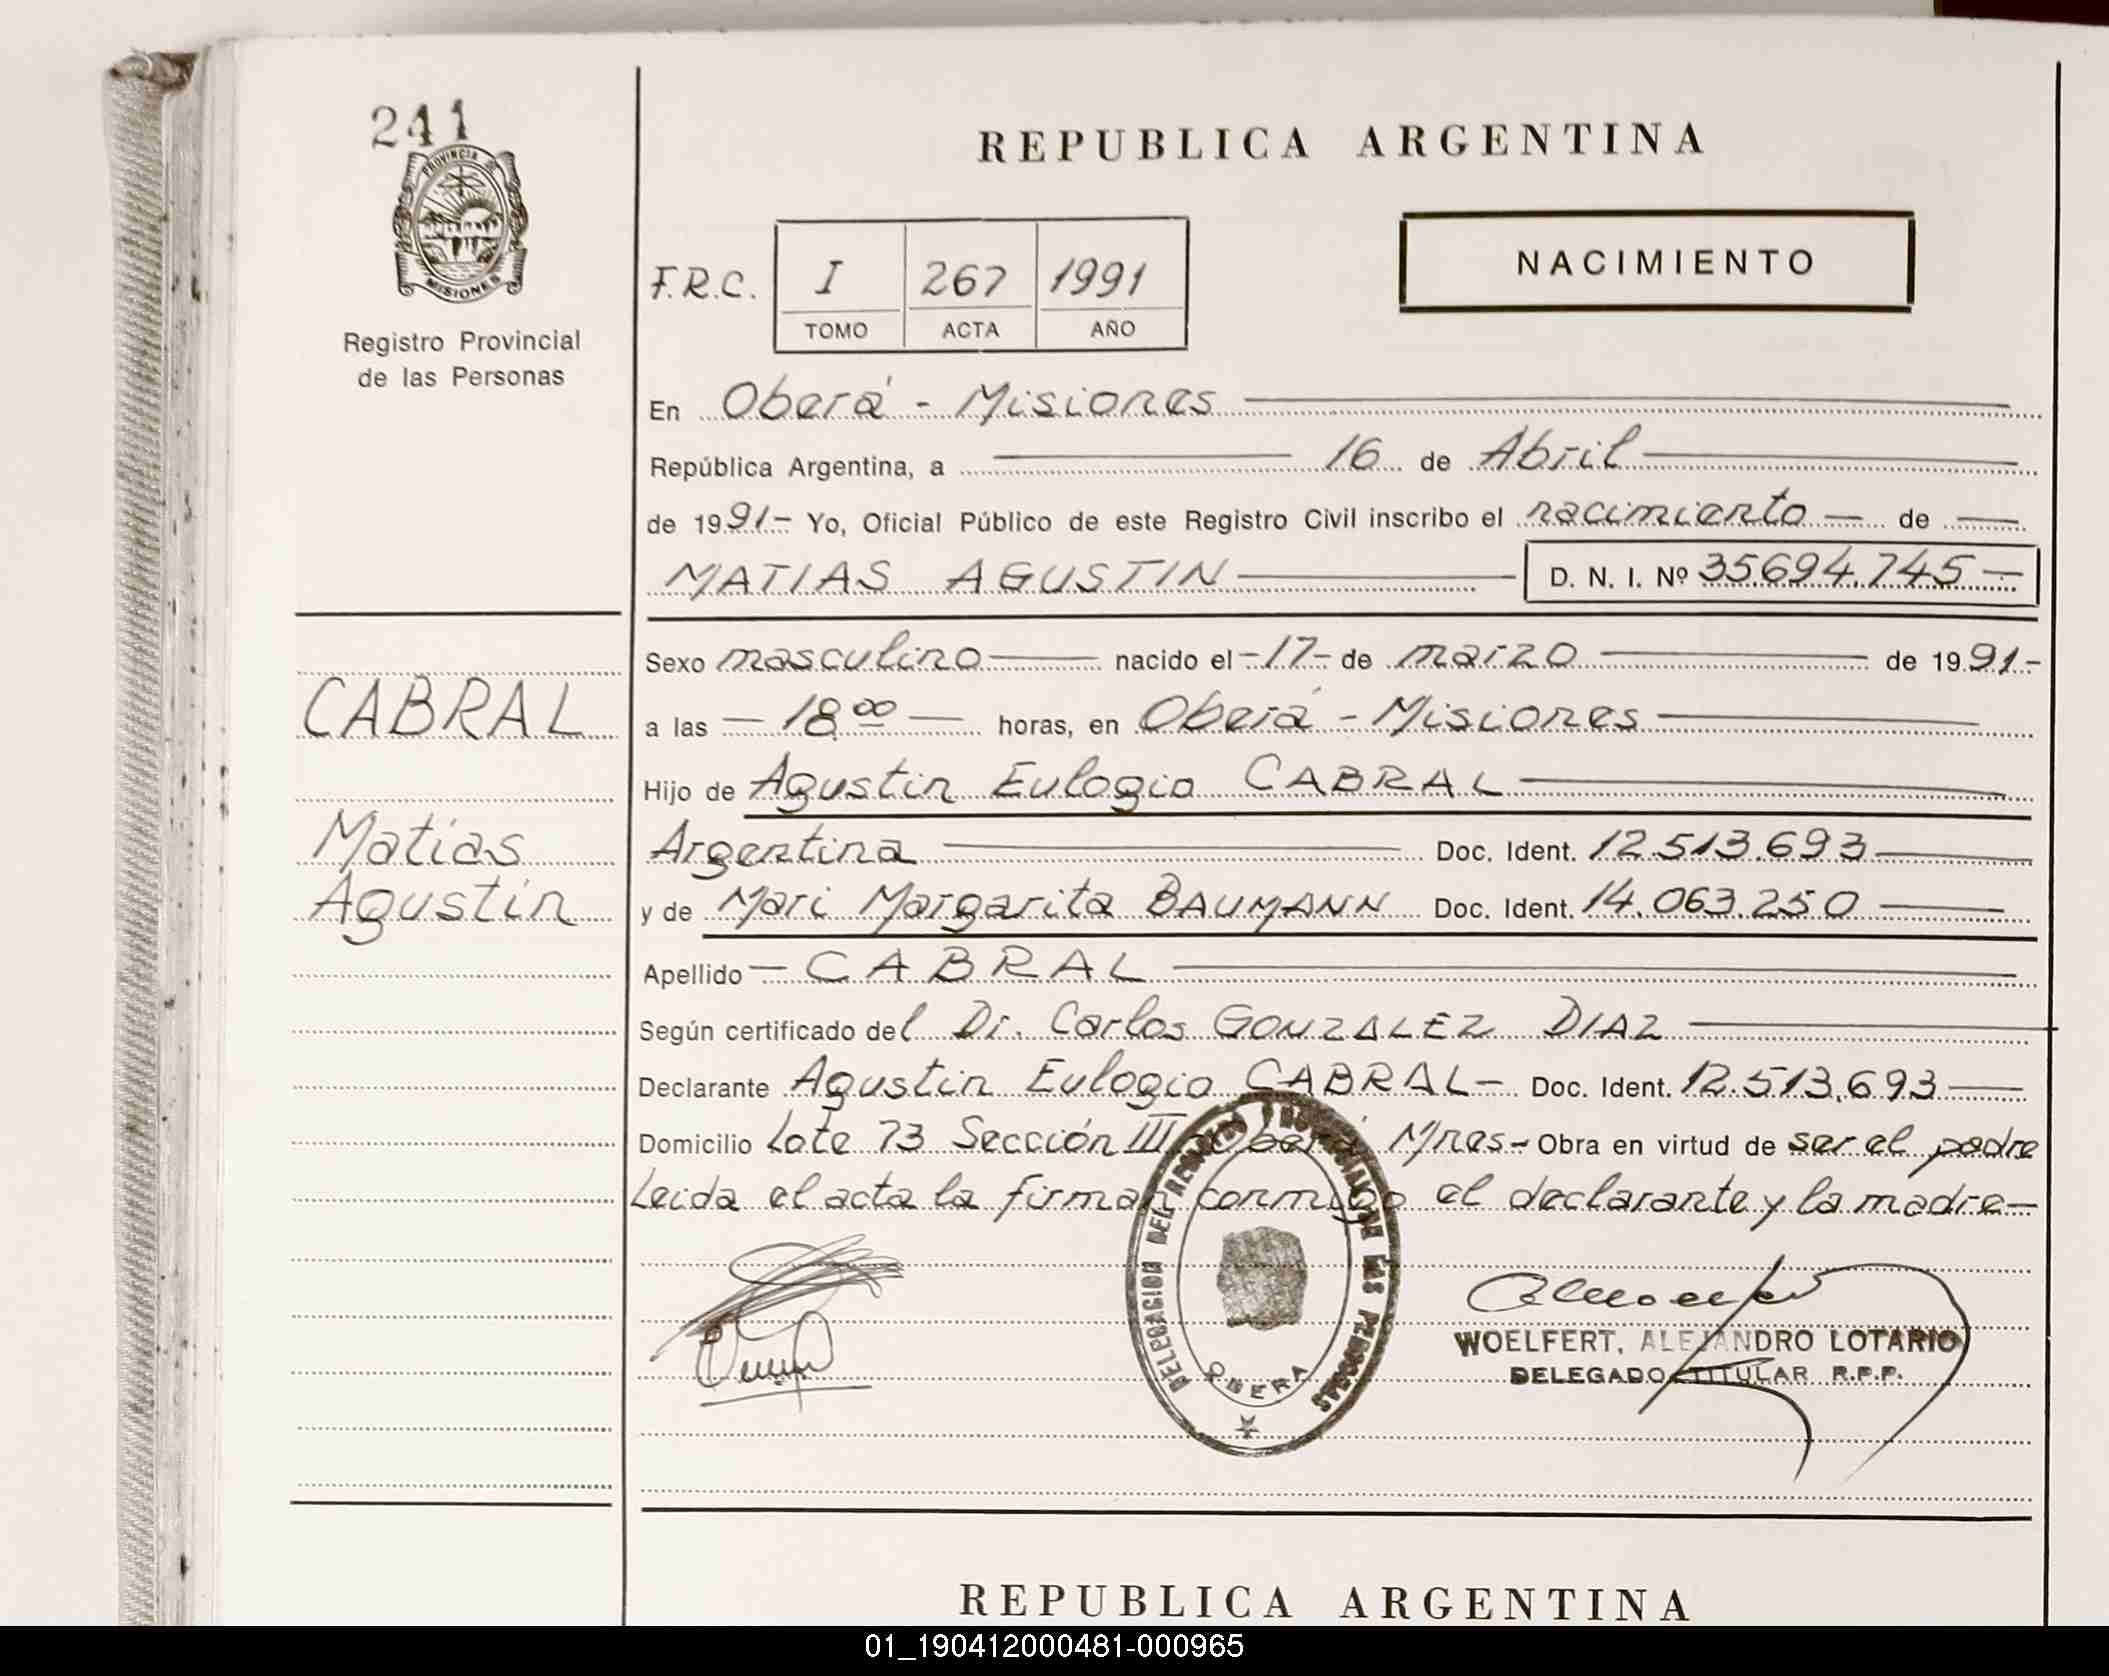 241
PROVINCIA
MISIONES
Registro Provincial
de las Personas
REPUBLICA ARGENTINA
NACIMIENTO
F.R.C. I 267 1991
TOMO ACTA AÑO
En Oberá - Misiones
República Argentina, a 16 de Abril
de 1991- Yo, Oficial Público de este Registro Civil inscribo el nacimiento - de -
MATIAS AGUSTIN - D. N. I. Nº 35694.745-
Sexo masculino nacido el -17- de marzo de 1991-
a las - 18 00 - horas, en Oberá - Misiones
Hijo de Agustin Eulogio CABRAL
Argentina Doc. Ident. 12.513.693
y de Mari Margarita BAUMANN Doc. Ident. 14.063.250
Apellido - CABRAL
Según certificado del Dr. Carlos GONZALEZ DIAZ
Declarante Agustin Eulogio CABRAL- Doc. Ident. 12.513.693
Domicilio Lote 73 Sección III Oberá Mnes- Obra en virtud de ser el padre
Leida el acta la firman conmigo el declarante y la madre-
CABRAL
Matias
Agustin
DELEGACION DEL REGISTRO PROVINCIAL DE LAS PERSONAS
OBERA
WOELFERT, ALEJANDRO LOTARIO
DELEGADO TITULAR R.P.P.
REPUBLICA ARGENTINA
01_190412000481-000965